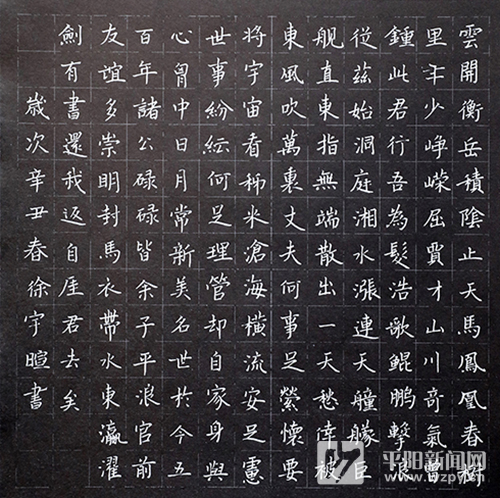 雲開衡岳積陰止天馬鳳凰春樹
里年少崢嶸屈賈才山川奇氣曾
鍾此君行吾為髮浩歌鯤鵬擊浪
從茲始洞庭湘水漲連天艟艨巨
舰直東指無端散出一天愁倖被
東風吹萬裏丈夫何事足縈懷要
將宇宙看稊米滄海橫流安足慮
世事紛紜何足理管却自家身與
心胷中日月常新美名世於今五
百年諸公碌碌皆余子平浪官前
友誼多崇明封馬衣帶水東瀛濯
劍有書還我返自厓君去矣
歲次辛丑春徐宇暄書
平阳新闻网